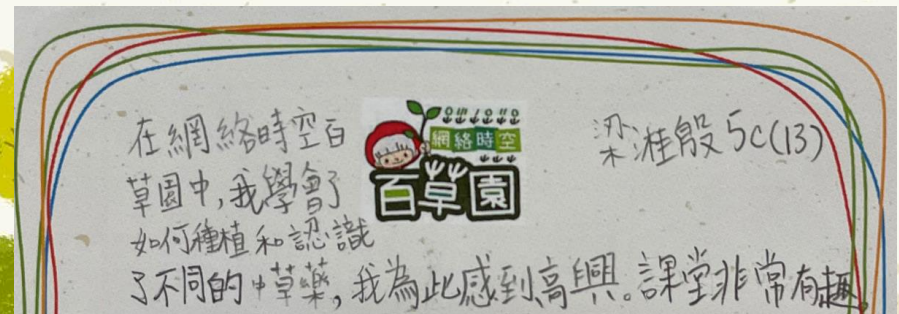 在網絡時空百
草園中,我學會了
如何種植和認識
了不同的中草藥,我為此感到高興。課堂非常有趣。
網絡時空
百草園
梁湝殷 5C(13)